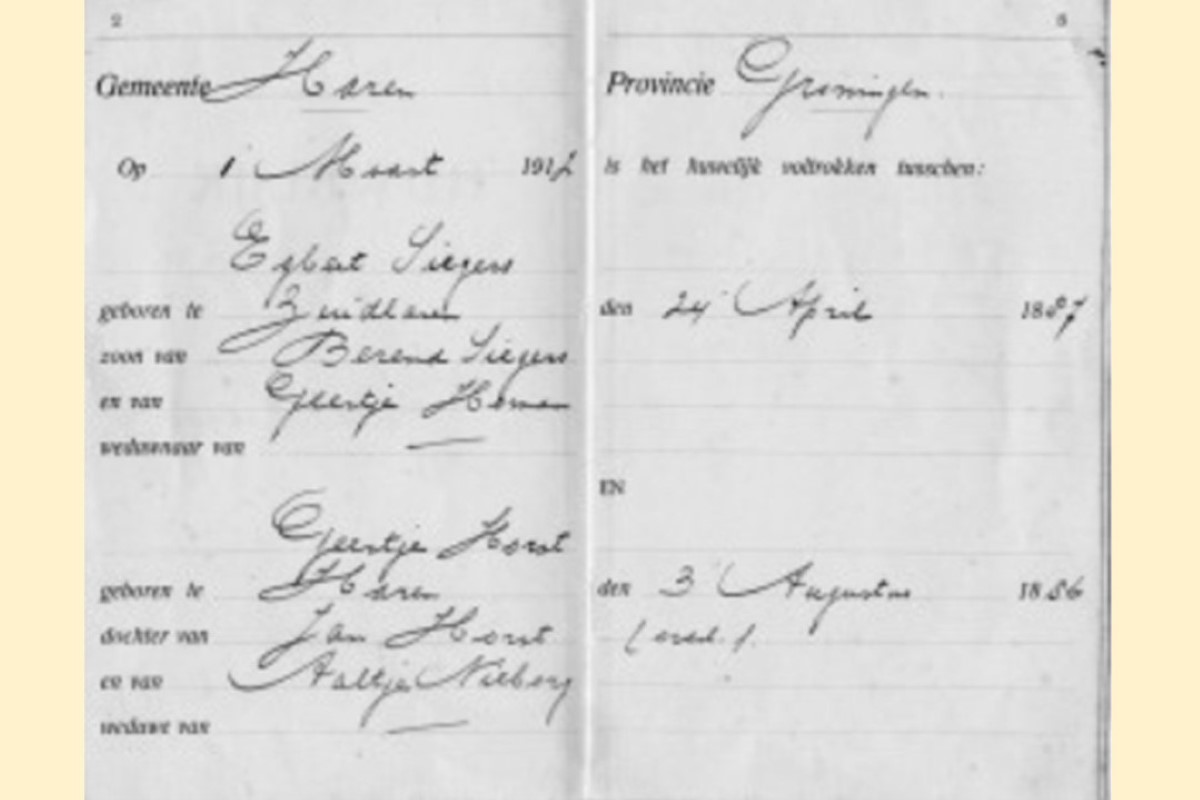 2
Gemeente Haren
Op 1 Maart 191
Egbert Siegers
geboren te Zuidlaren
zoon van Berend Siegers
en van Geertje Homan
weduwnaar van —
Geertje Horst
geboren te Haren
dochter van Jan Horst
en van Aaltje Nieborg
weduwe van —
Provincie Groningen.
is het huwelijk voltrokken tusschen:
den 24 April 1887
EN
den 3 Augustus 1886